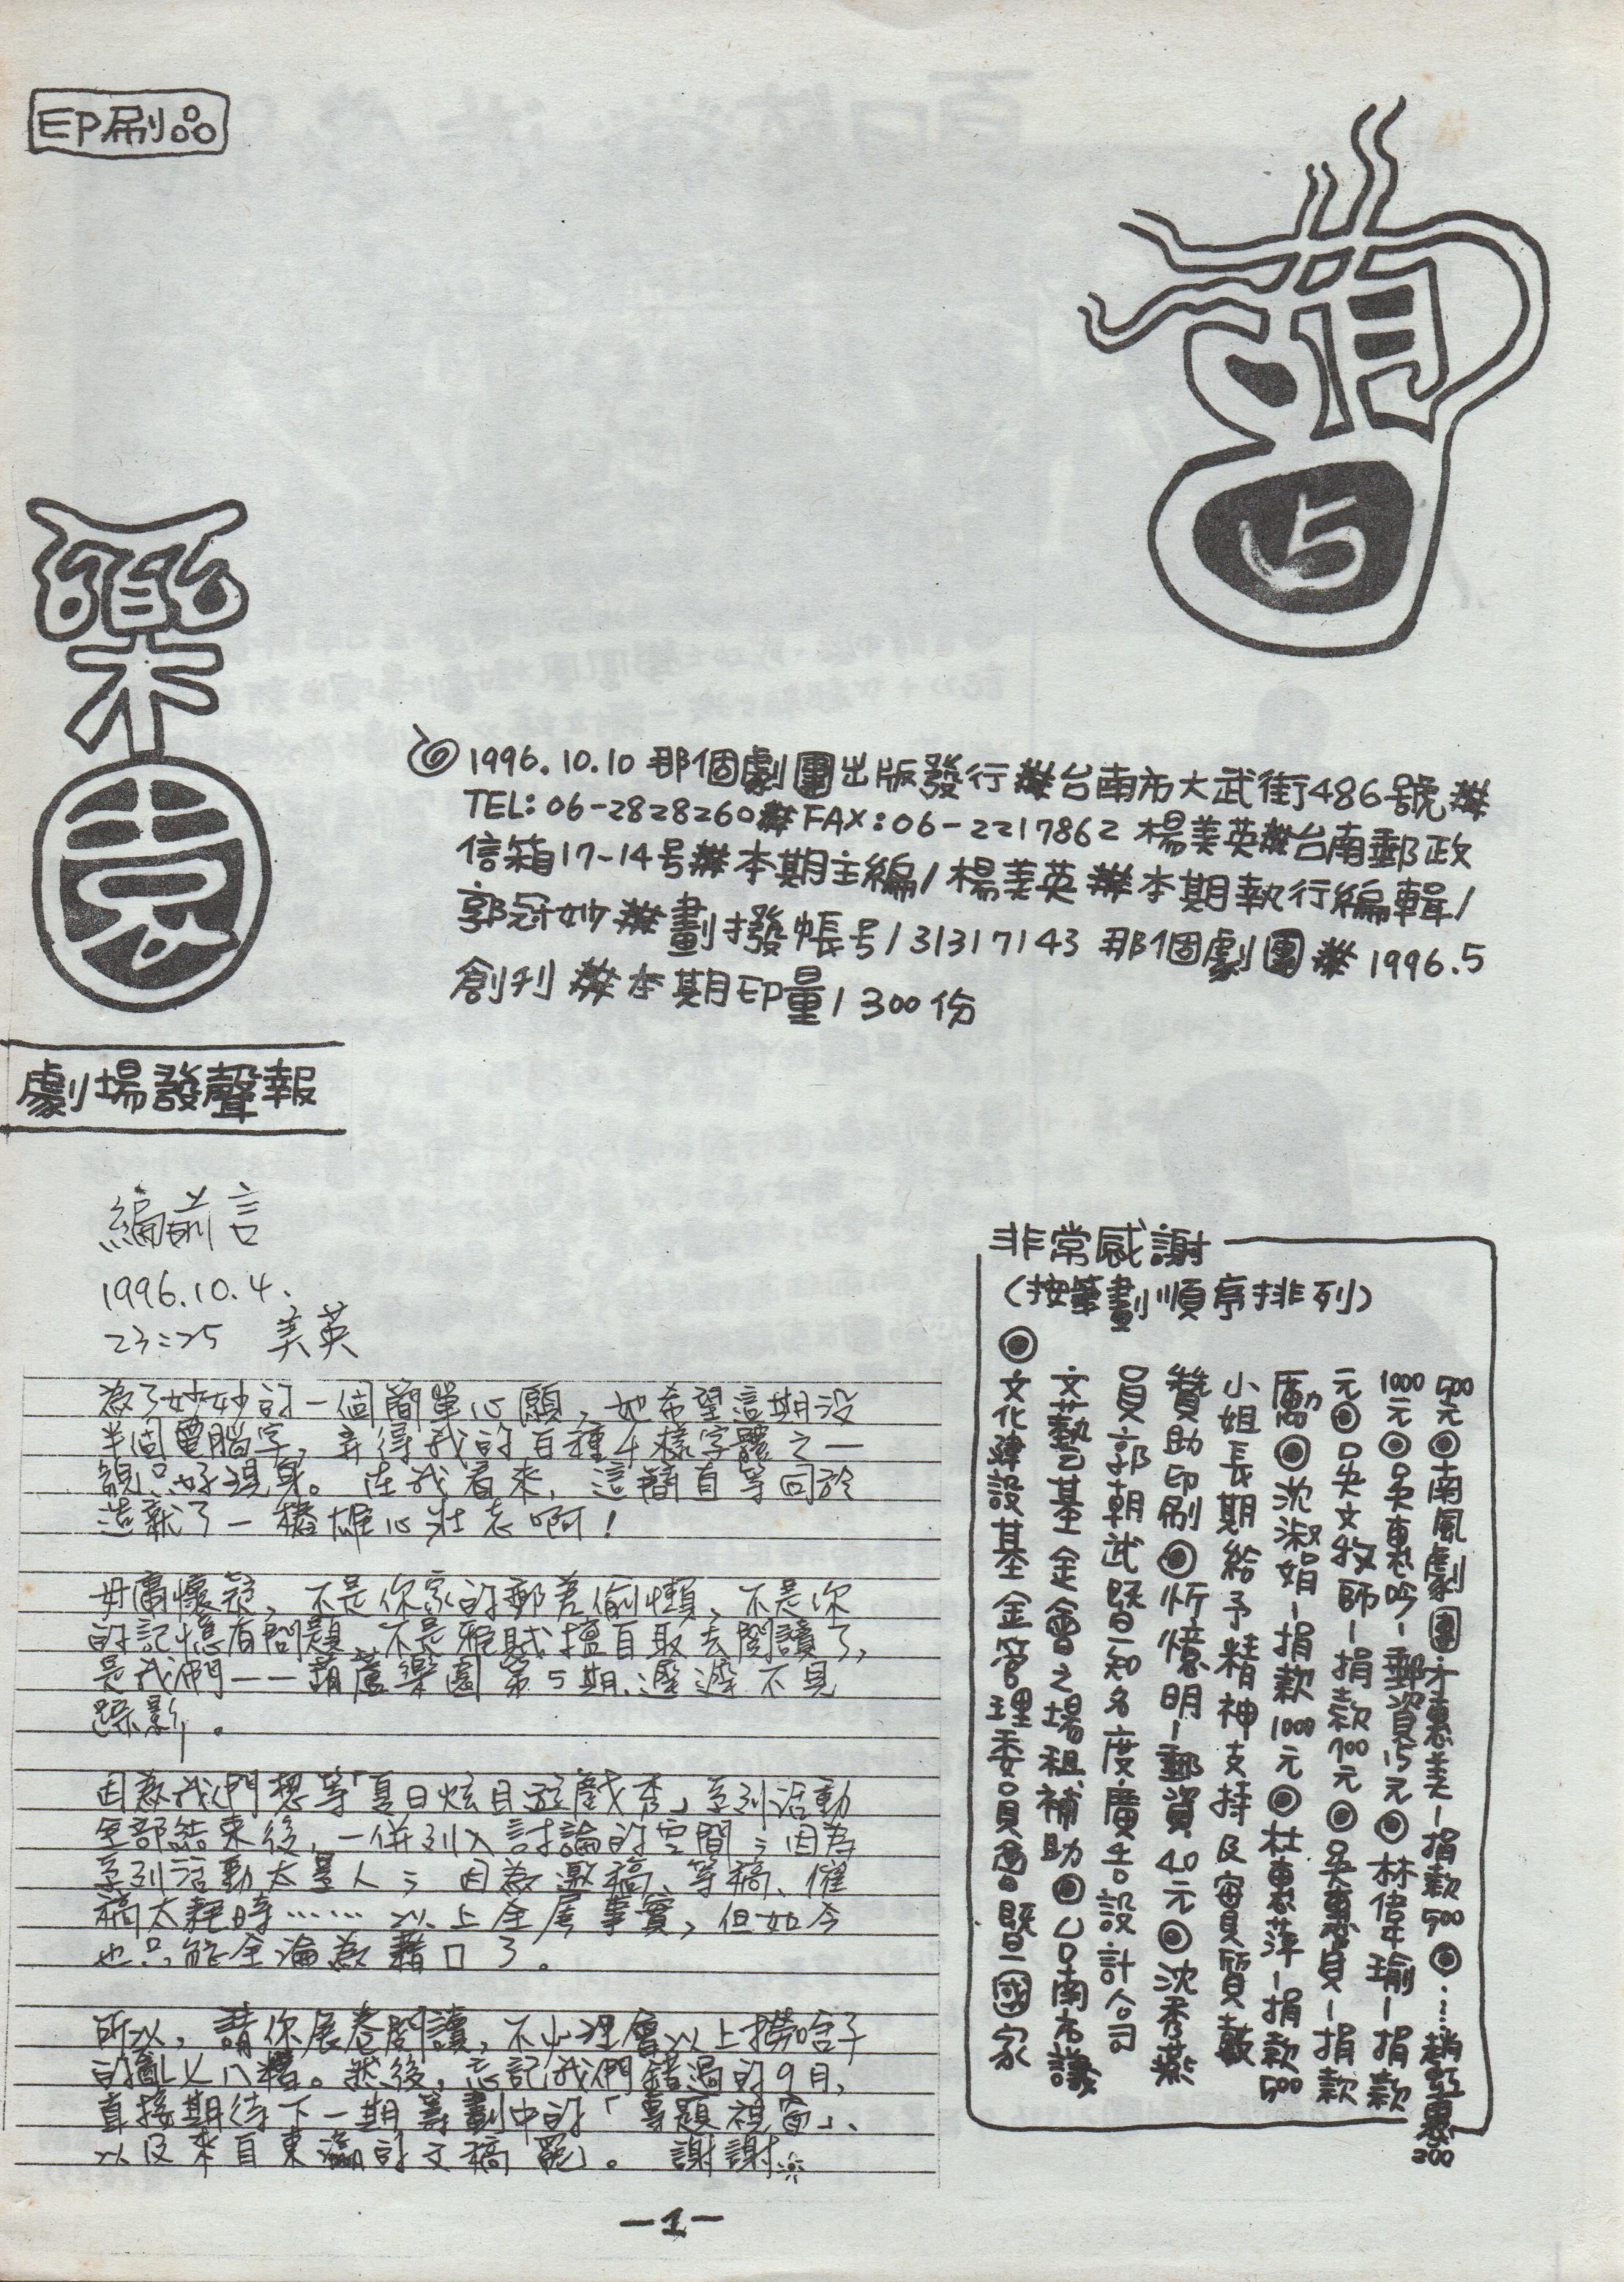 印刷品
葫
5
樂園
劇場發聲報
1996.10.10 那個劇團出版發行 ⋕台南市大武街486號 ⋕
TEL: 06-2828260⋕FAX:06-2217862 楊美英⋕台南郵政
信箱17-14号⋕本期主編/楊美英 ⋕本期執行編輯/
郭冠妙⋕劃撥帳号/31317143 那個劇團 ⋕ 1996.5
創刊 ⋕本期印量/300份
編前言
1996.10.4.
23:25 美英
為了妙妙的一個簡單心願,她希望這期沒
半個電腦字,弄得我的百種4樣字體之一
貌只好現身。在我看來,這簡直等同於
造就了一樁雄心壯志啊!
毋庸懷疑,不是你家的郵差偷懶、不是你
的記憶有問題、不是雅賊擅自取去閱讀了,
是我們——葫蘆樂園第5期、遲遲不見
蹤影。
因為我們想等「夏日炫目遊戲秀」系列活動
全部結束後,一併列入討論的空間;因為
系列活動太累人;因為邀稿、等稿、催
稿太耗時……以上全屬事實,但如今
也只能全淪為藉口了。
所以,請你展卷閱讀,不必理會以上撈啥子
的亂七八糟。然後,忘記我們錯過的9月,
直接期待下一期籌劃中的「專題視窗」、
以及來自東瀛的文稿罷。 謝謝
非常感謝
(按筆劃順序排列)
◎
文化建設基金管理委員會暨國家
文藝基金會之場租補助◎台南市議
員郭朝武暨知名度廣告設計公司
贊助印刷◎忻憶明-郵資40元◎沈秀燕
小姐長期給予精神支持及實質鼓
勵◎沈淑娟-捐款1000元◎杜惠萍-捐款500
元◎吳文牧師-捐款700元◎吳員-捐款
1000元◎吳惠吟-郵資15元◎林偉瑜-捐款
500元◎南風劇團木惠美-捐款500◎……趙惠300
-1-